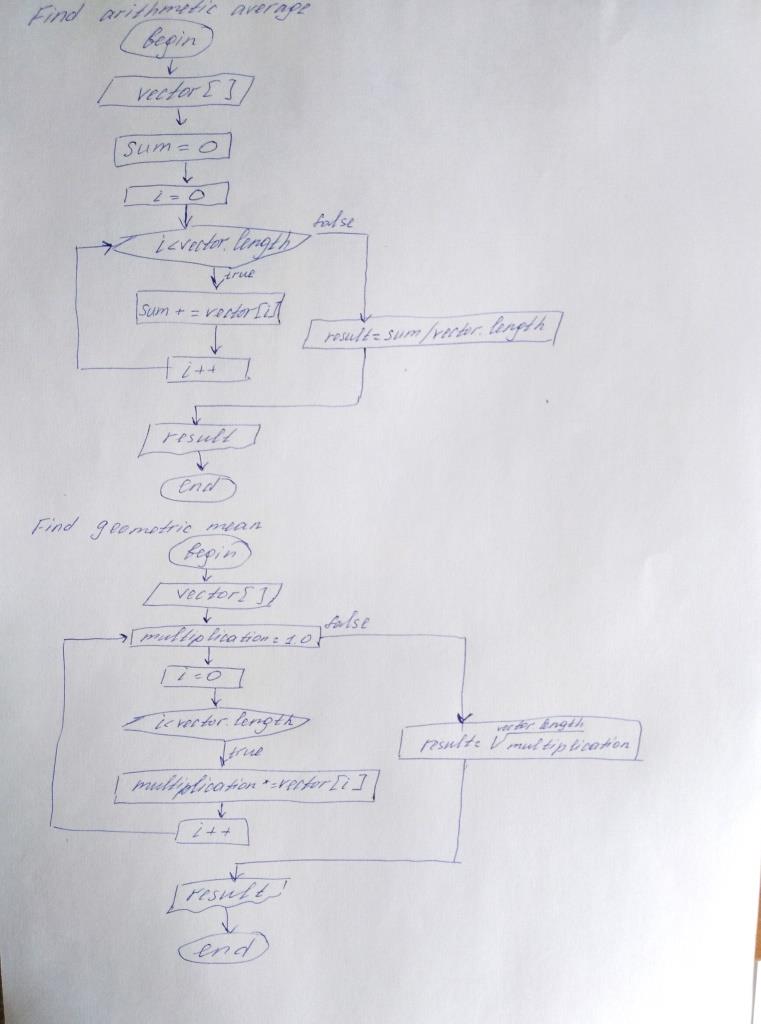 Find arithmetic average
begin
vector[ ]
sum = 0
i = 0
i<vector.length
false
true
sum += vector[i]
result=sum/vector.length
i++
result
end
Find geometric mean
begin
vector[ ]
multiplication=1.0
false
i=0
i<vector.length
true
vector length
result= √multiplication
multiplication*=vector[i]
i++
result
end